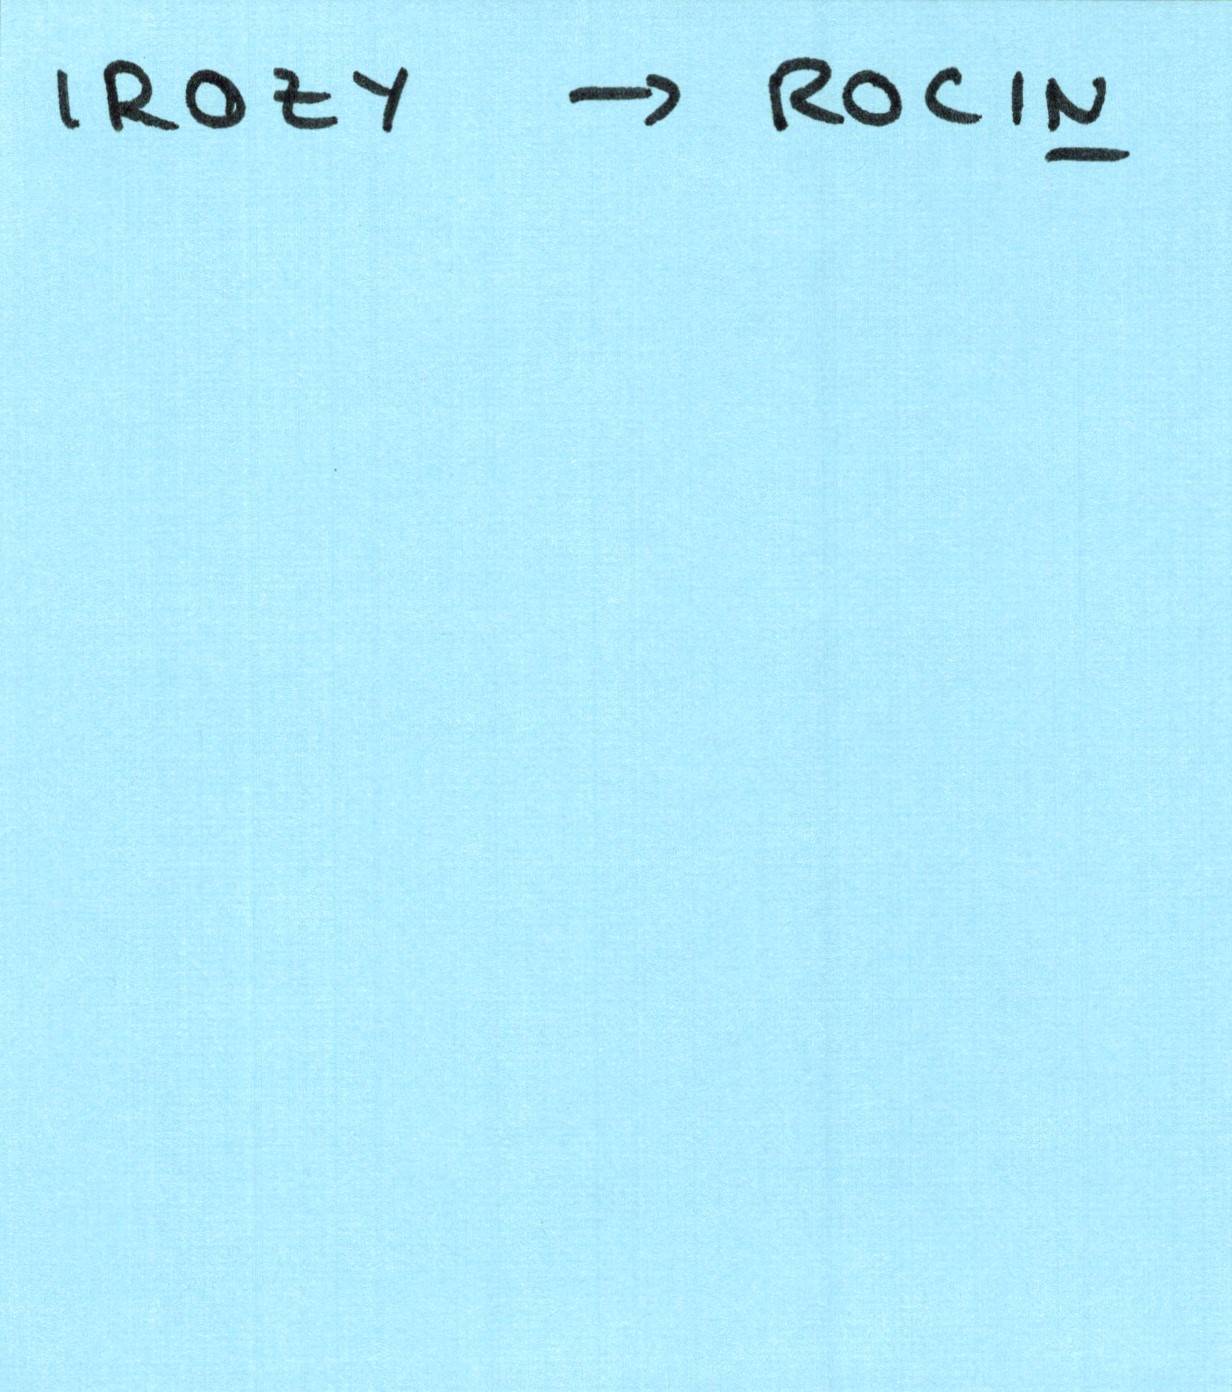 IROZY → ROCIN